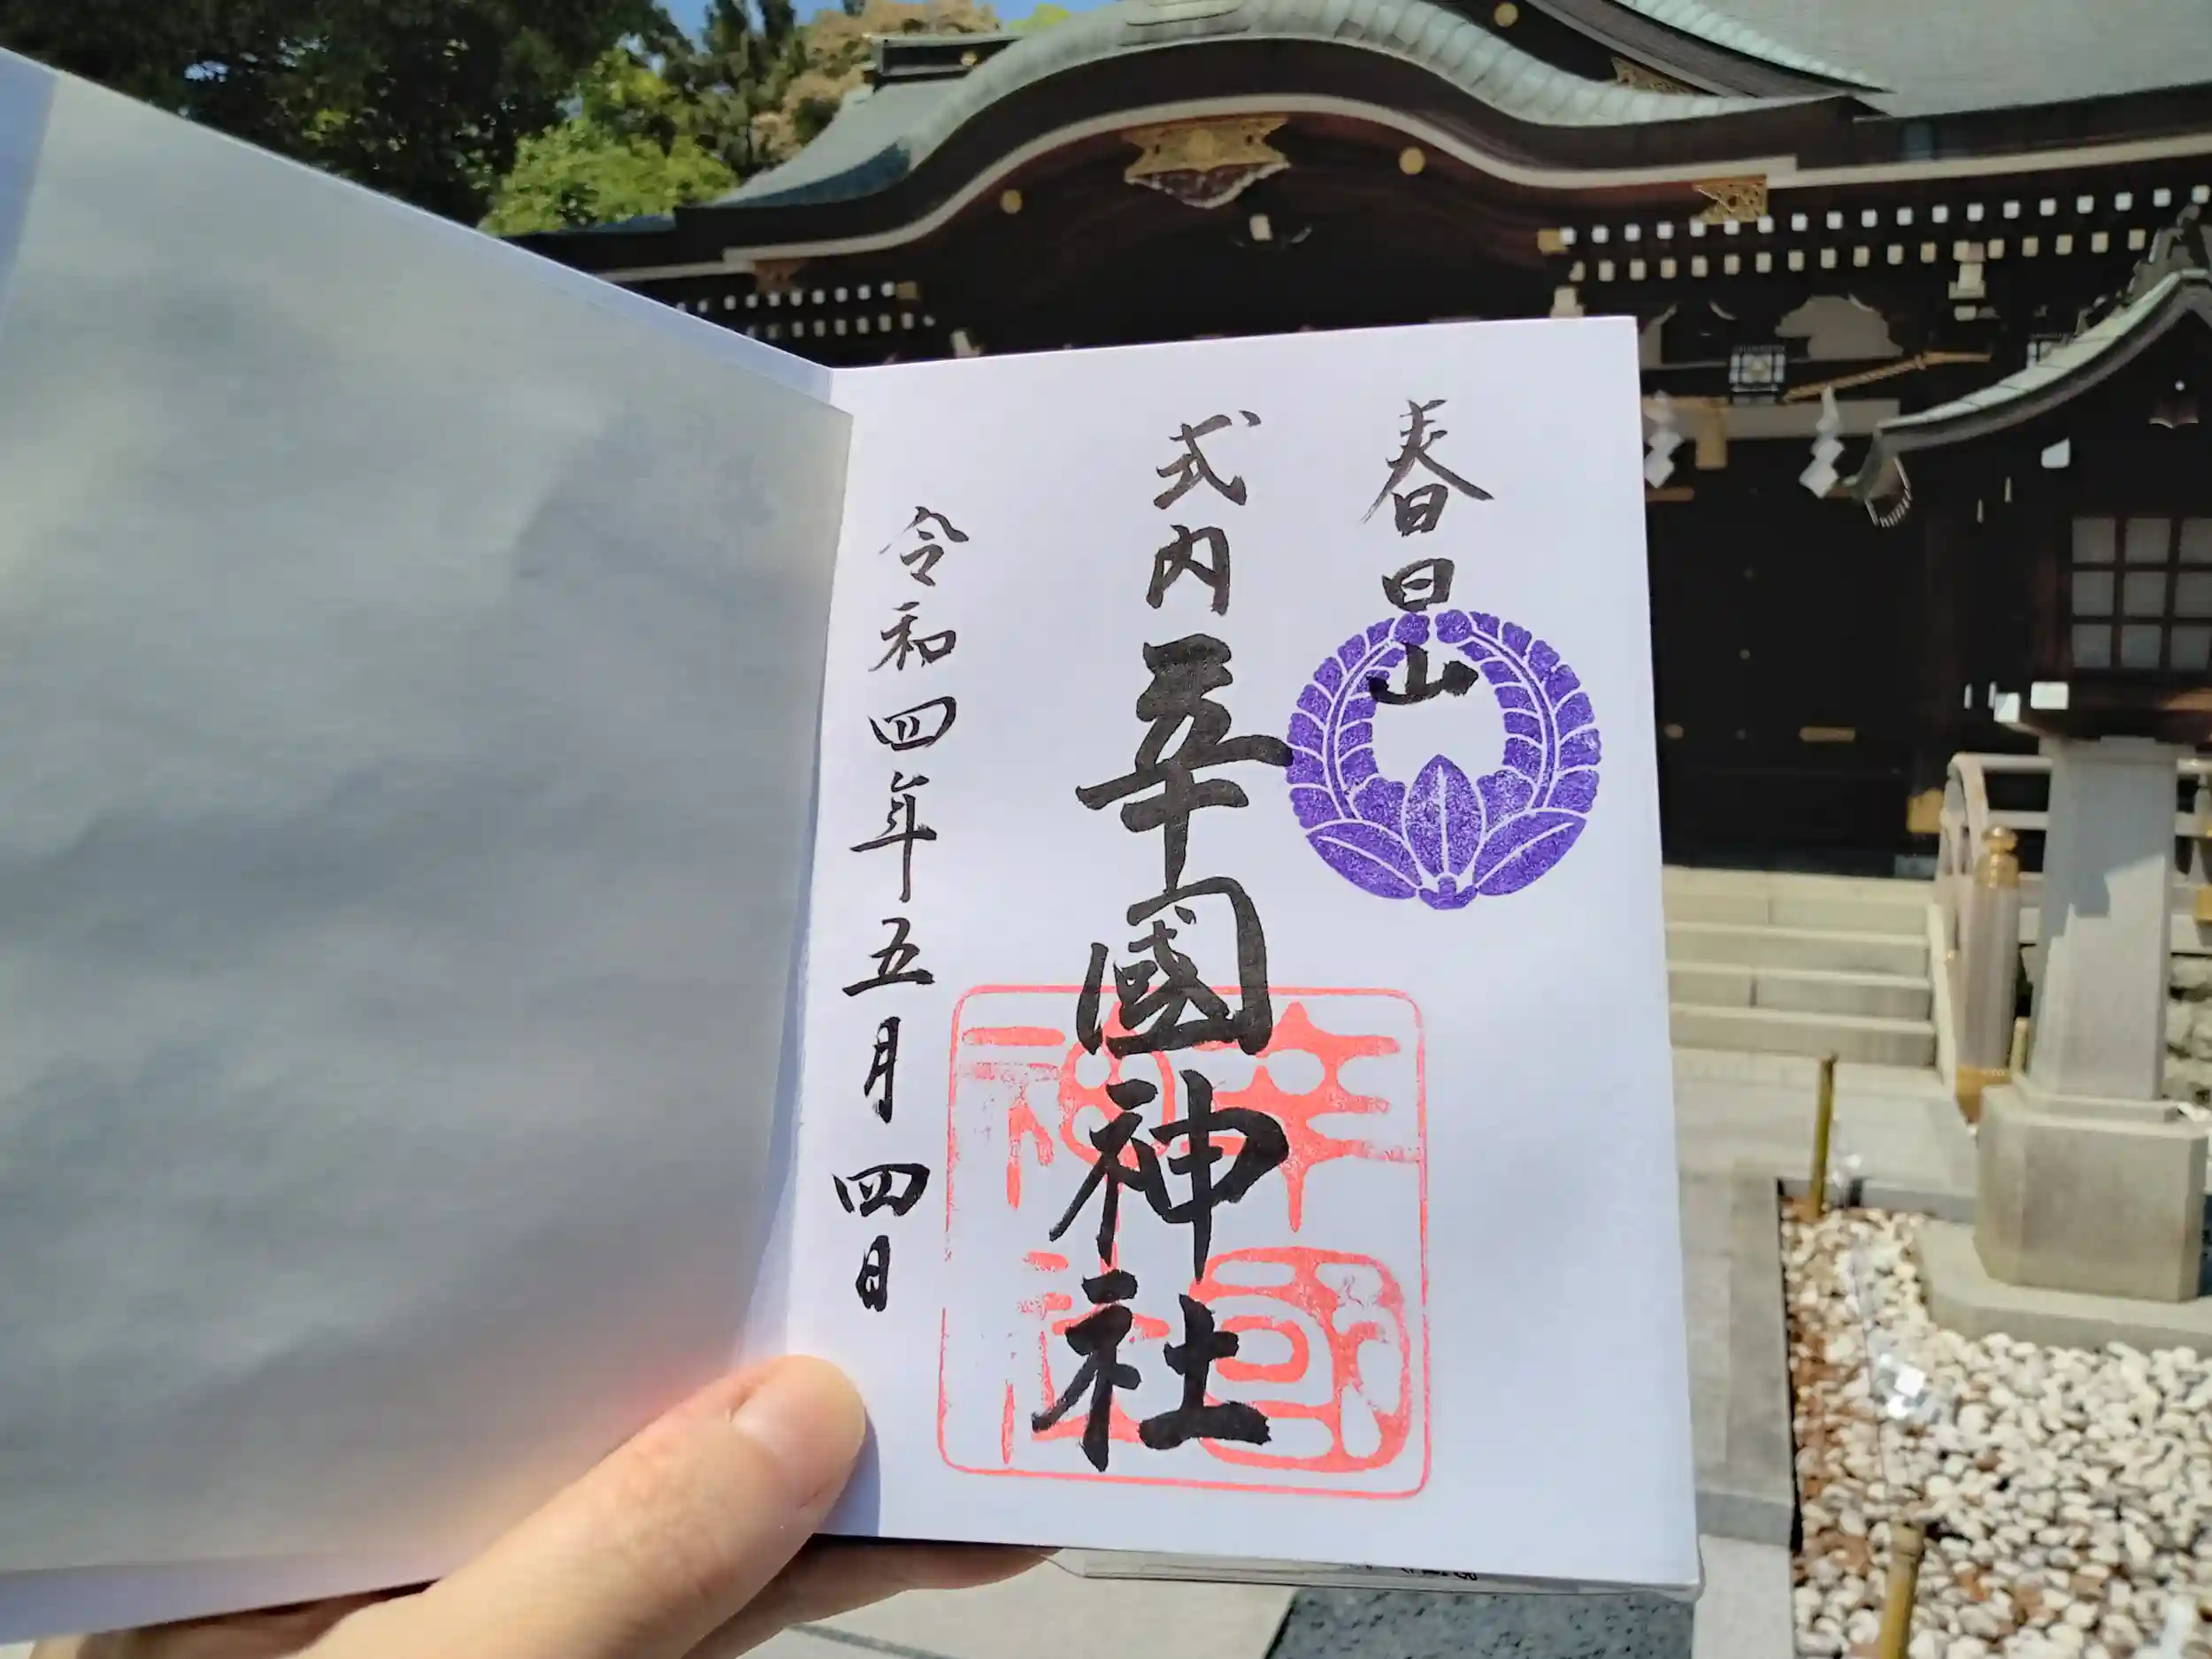 春日山
式内辛國神社
令和四年五月四日
辛國神社